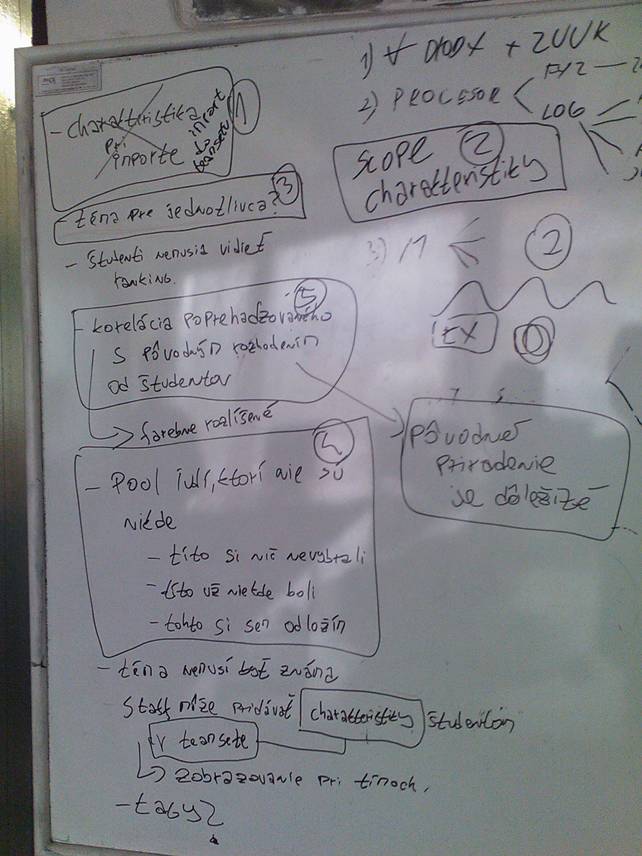 - charakteristika
pri
importe
import
do
teamsetu
1
- téma pre jednotlivca?
3
- študenti nemusia vidieť
ranking.
- korelácia poprehadzovaného
5
s pôvodným rozhodením
od študentov
farebne rozlíšené
4
- Pool ľudí, ktorí nie sú
nikde
- títo si nič nevybrali
- títo už niekde boli
- tohto si sem odložím
- téma nemusí byť známa
staff môže pridávať charakteristiky študentom
v teamsete
zobrazovanie pri tímoch.
- tagy?
1) ∀
+ ZUUK
2) PROCESOR
FYZ
LOG
scope 2
charakteristiky
3) M
2
EX
0
pôvodné
priradenie
je dôležité